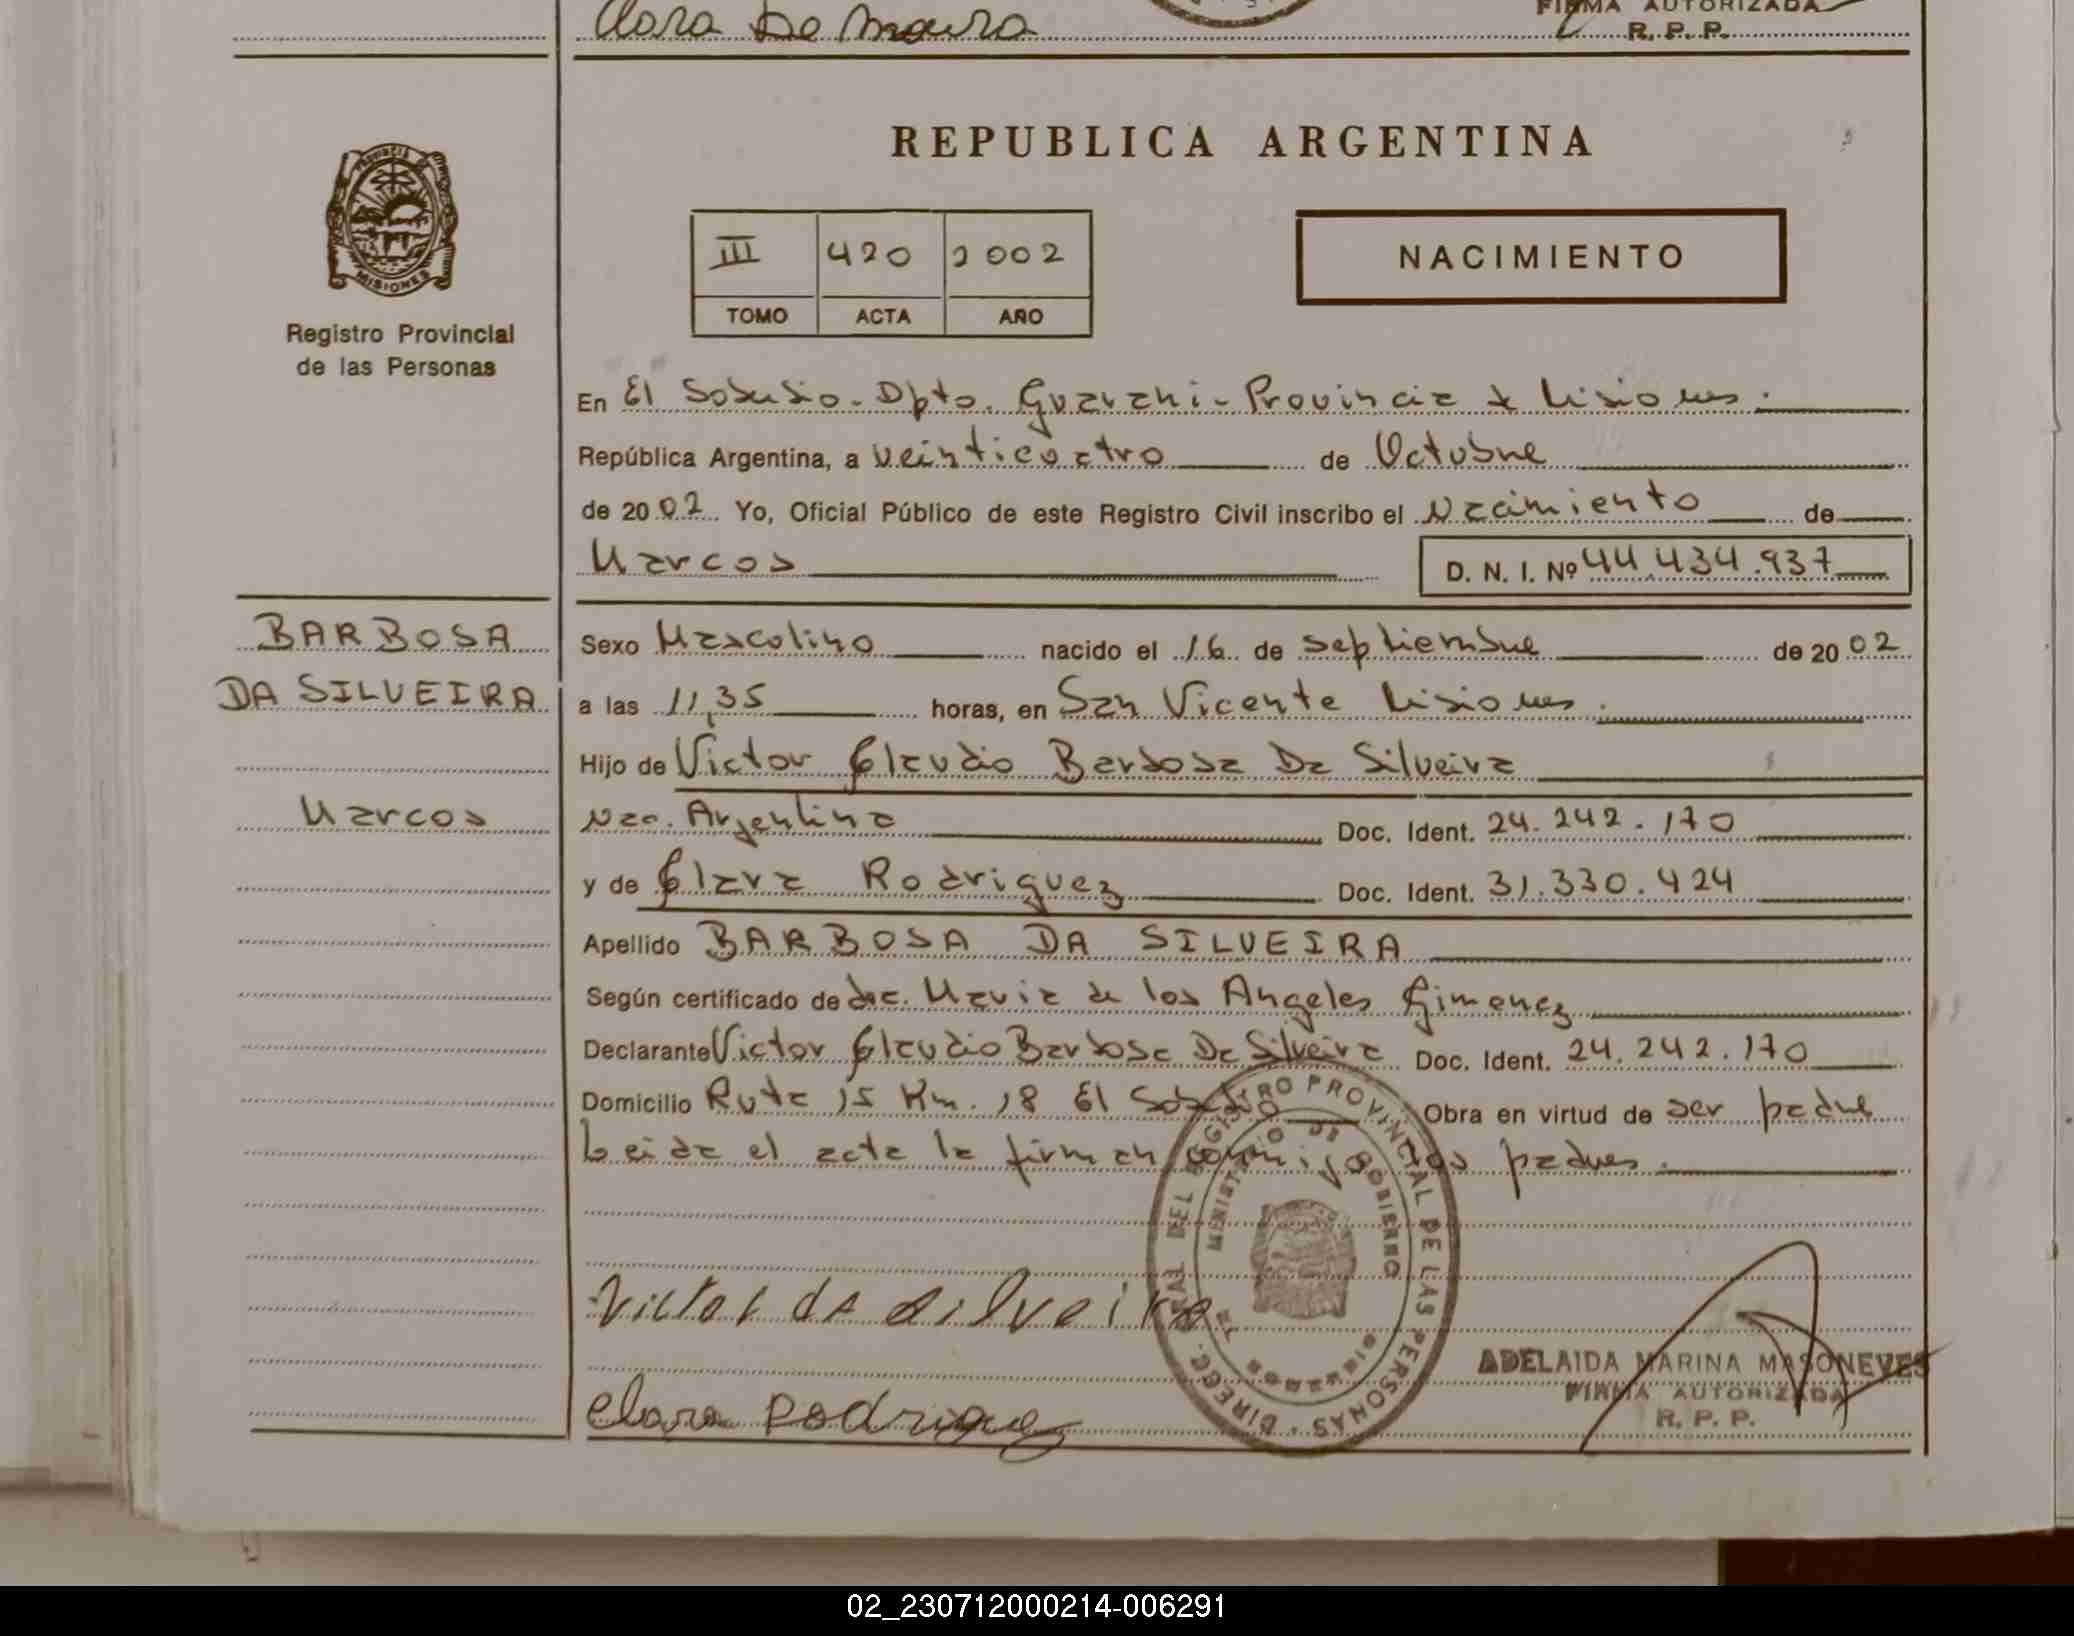 Clara De Moura
FIRMA AUTORIZADA
R. P. P.
PROVINCIA DE
MISIONES
Registro Provincial
de las Personas
REPUBLICA ARGENTINA
III 420 2002
TOMO ACTA AÑO
NACIMIENTO
En El Soberbio - Dpto. Guarani - Provincia de Misiones.
República Argentina, a veinticuatro de Octubre
de 20 02 Yo, Oficial Público de este Registro Civil inscribo el Nacimiento de
Marcos D. N. I. Nº 44.434.937
BARBOSA
DA SILVEIRA
Marcos
Sexo Masculino nacido el 16 de septiembre de 20 02
a las 11,35 horas, en San Vicente Misiones.
Hijo de Victor Claudio Barbosa Da Silveira
Nac. Argentina Doc. Ident. 24.242.170
y de Clara Rodriguez Doc. Ident. 31.330.424
Apellido BARBOSA DA SILVEIRA
Según certificado de doc. Maria de los Angeles Gimenez
Declarante Victor Claudio Barbosa Da Silveira Doc. Ident. 24.242.170
Domicilio Ruta 15 Km. 18 El Soberbio Obra en virtud de ser padre
Leida el acta la firman conmigo los padres.
DIREC. GRAL DEL REGISTRO PROVINCIAL DE LAS PERSONAS
MINISTERIO DE GOBIERNO
MISIONES
Victor da silveira
ADELAIDA MARINA MASONEVES
FIRMA AUTORIZADA
R. P. P.
Clara Rodriguez
02_230712000214-006291